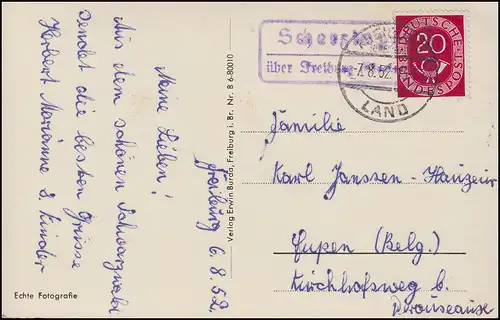 Freiburg 6.8.52.
Meine Lieben!
Aus dem schönen Schwarzwald
sendet die besten Grüsse
Herbert Marianne & Kinder
Echte Fotografie
Verlag Erwin Burda, Freiburg i. Br. Nr. B 6-80010
über
7.8.52
LAND
DEUTSCHE
BUNDESPOST
20
Familie
Karl Janssen-Hauzeur
Eupen (Belg.)
Kirchhofsweg b.